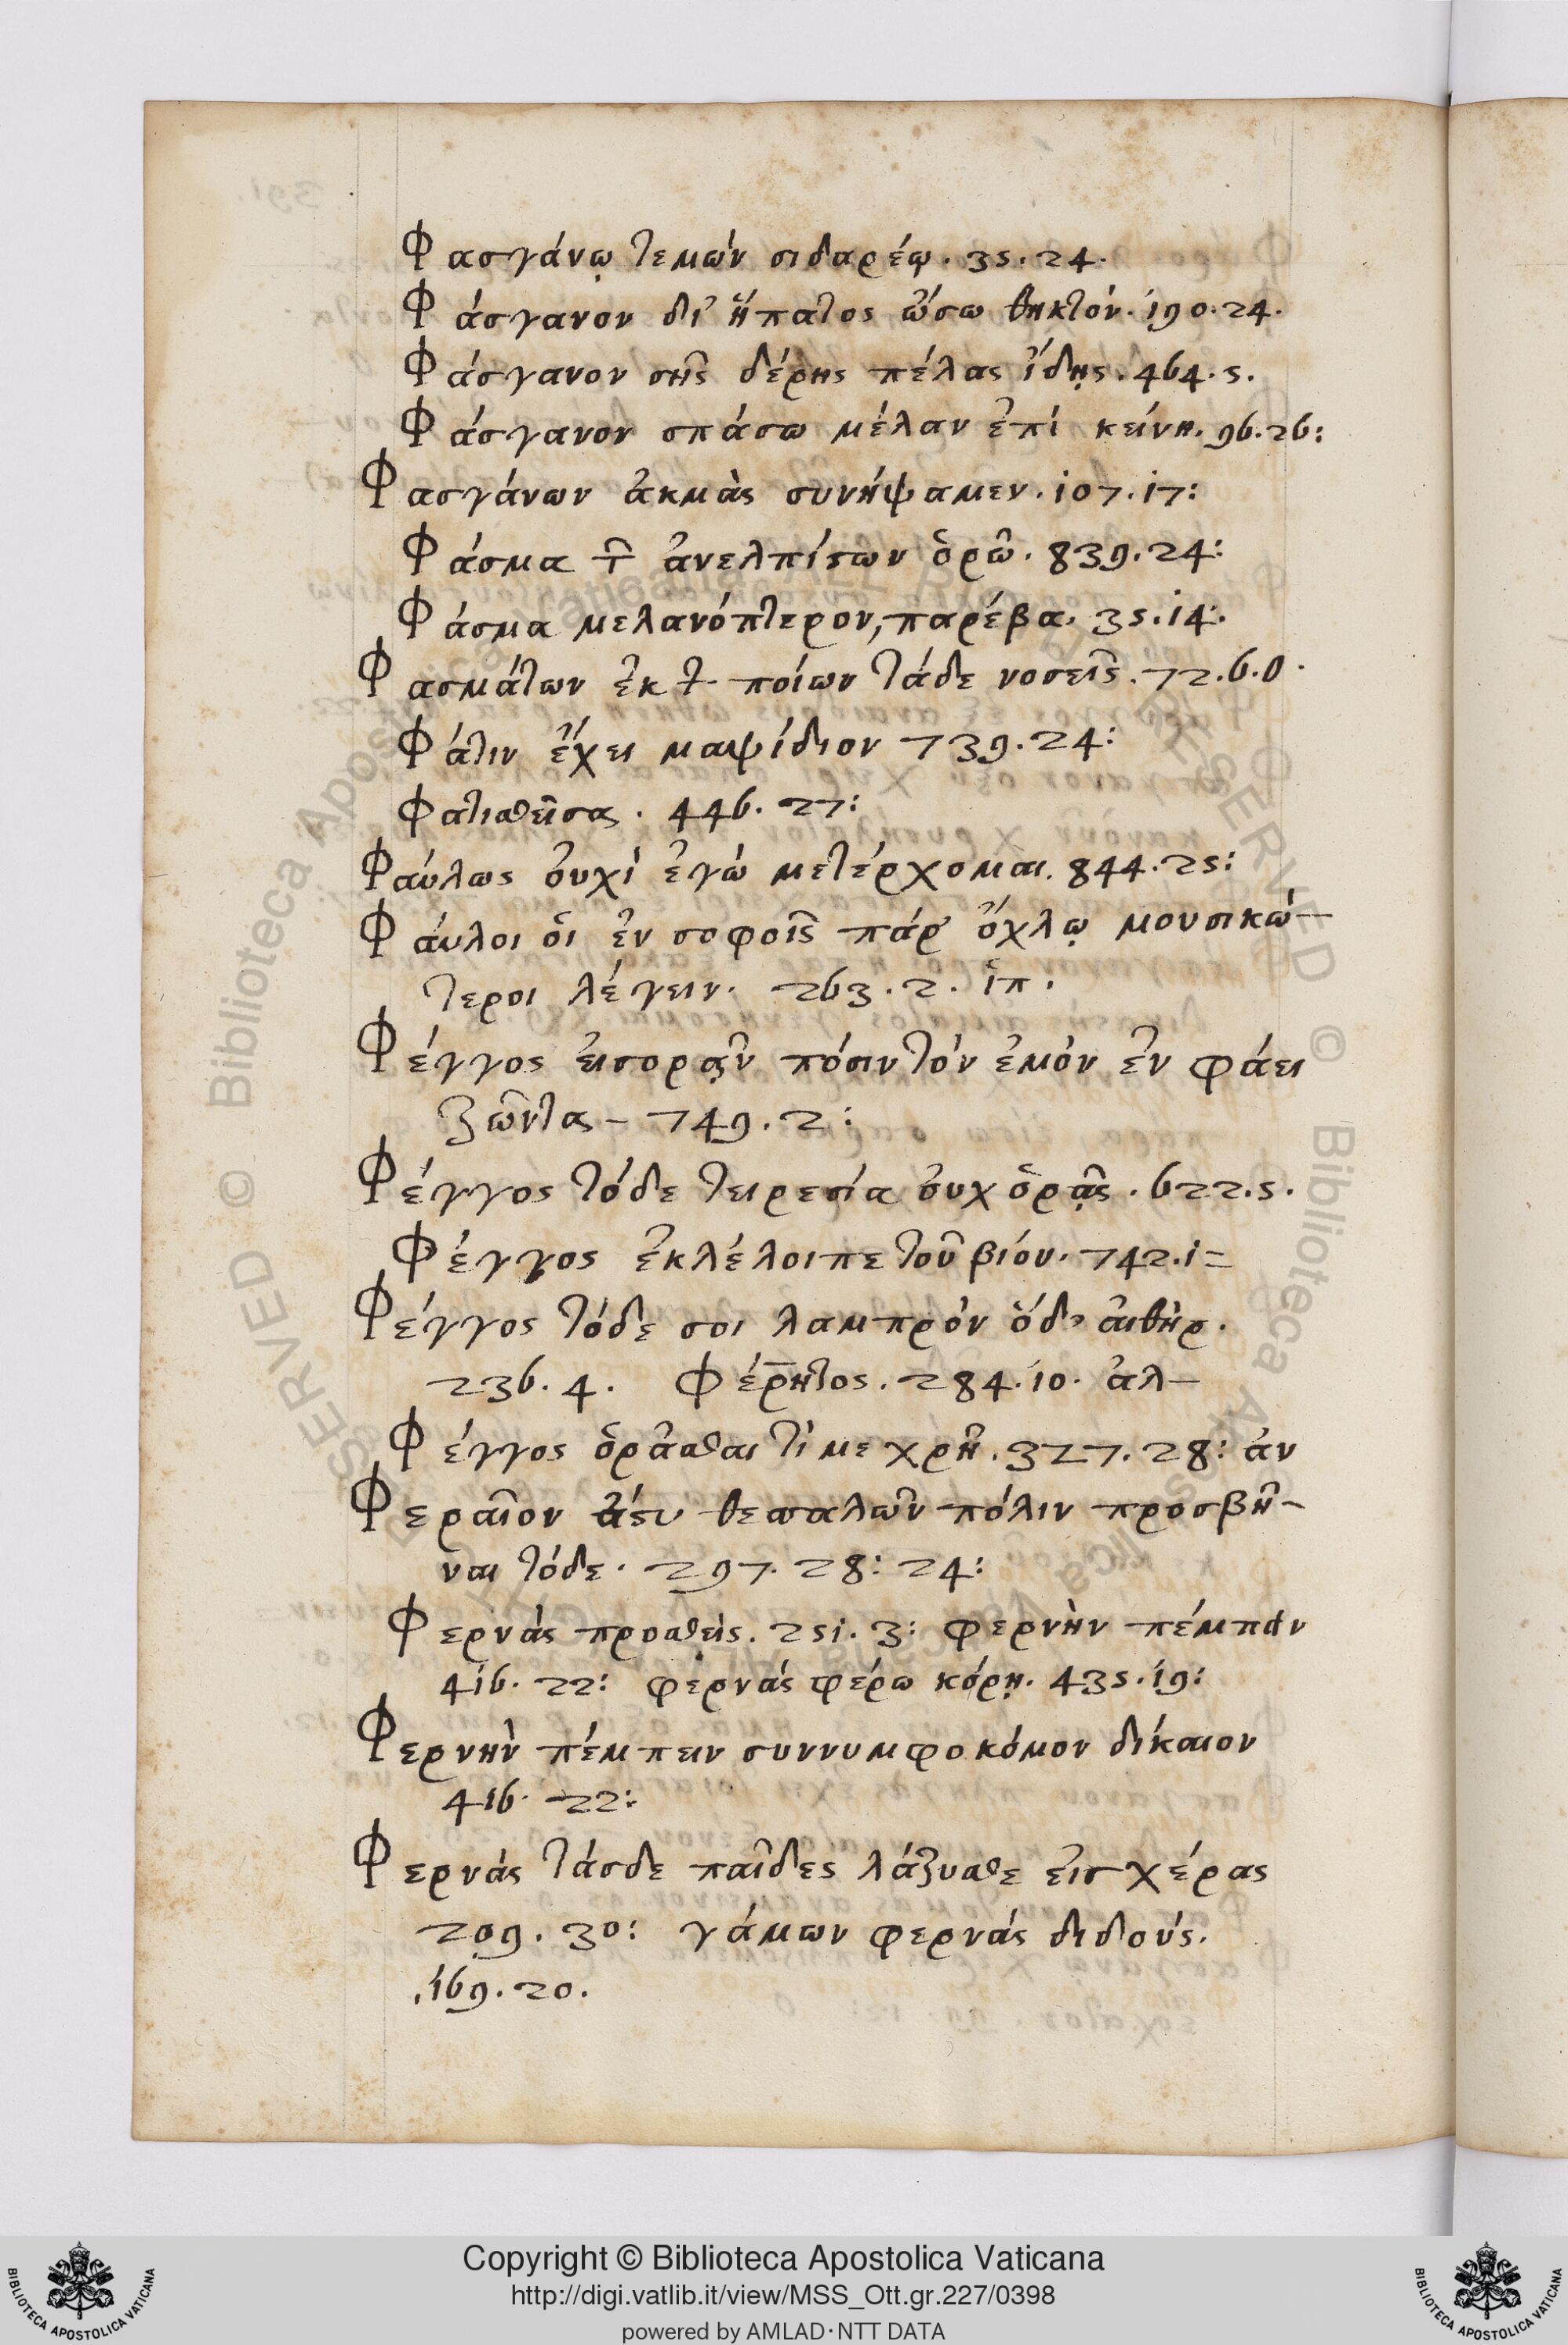 Φασγάνῳ τεμών σιδαρέῳ. 35. 24.
Φάσγανον δι' ἥπατος ὤσω θηκτόν. 190. 24.
Φάσγανον σῆς δέρης πέλας ἴδῃς. 464. 5.
Φάσγανον σπάσω μέλαν ἐπί κείνη. 96. 26:
Φασγάνων ἀκμὰς συνήψαμεν. 107. 17:
Φάσμα τῶν ἀνελπίστων ὁρῶ. 839. 24:
Φάσμα μελανόπτερον, παρέβα. 35. 14:
Φασμάτων ἐκ ποίων τάδε νοσεῖς. 72. 6. 0.
Φάτιν ἔχει μαψίδιον 739. 24:
Φατισθεῖσας. 446. 27:
Φαύλως οὐχὶ ἐγώ μετέρχομαι. 844. 25:
Φάυλοι οἱ ἐν σοφοῖς πάρ' ὄχλῳ μουσικώ-
τεροι λέγειν. 263. 2. ἱπ.
Φέγγος εἰσορᾷν πόσιν τὸν ἐμὸν ἐν φάει
ζῶντας - 749. 2:
Φέγγος τόδε τειρεσία ὀυχ ὁρᾷς. 622. 5.
Φέγγος ἐκλέλοιπε τοῦ βιόυ. 742. 1=
Φέγγος τόδε σοι λαμπρὸν ὅδ' ἀιθὴρ.
236. 4. Φέρητος. 284. 10. ἀλ-
Φέγγος ὁρᾶσθαι τί με χρῆ. 327. 28: ἀν
Φεραῖον ἄστυ θεσσαλῶν πόλιν προσβῆ-
ναι τόδε. 297. 28: 24:
Φερνάς προσθεὶς. 251. 3: φερνὴν πέμπειν
416. 22: φερνάς φέρω κόρῃ. 435. 19:
Φερνὴν πέμπειν συννυμφοκόμον δίκαιον
416. 22:
Φερνάς τάσδε παῖδες λάζυσθε εἰσ χέρας
209. 30: γάμων φερνάς διδούς.
169. 20.
Copyright © Biblioteca Apostolica Vaticana
http://digi.vatlib.it/view/MSS_Ott.gr.227/0398
powered by AMLAD·NTT DATA